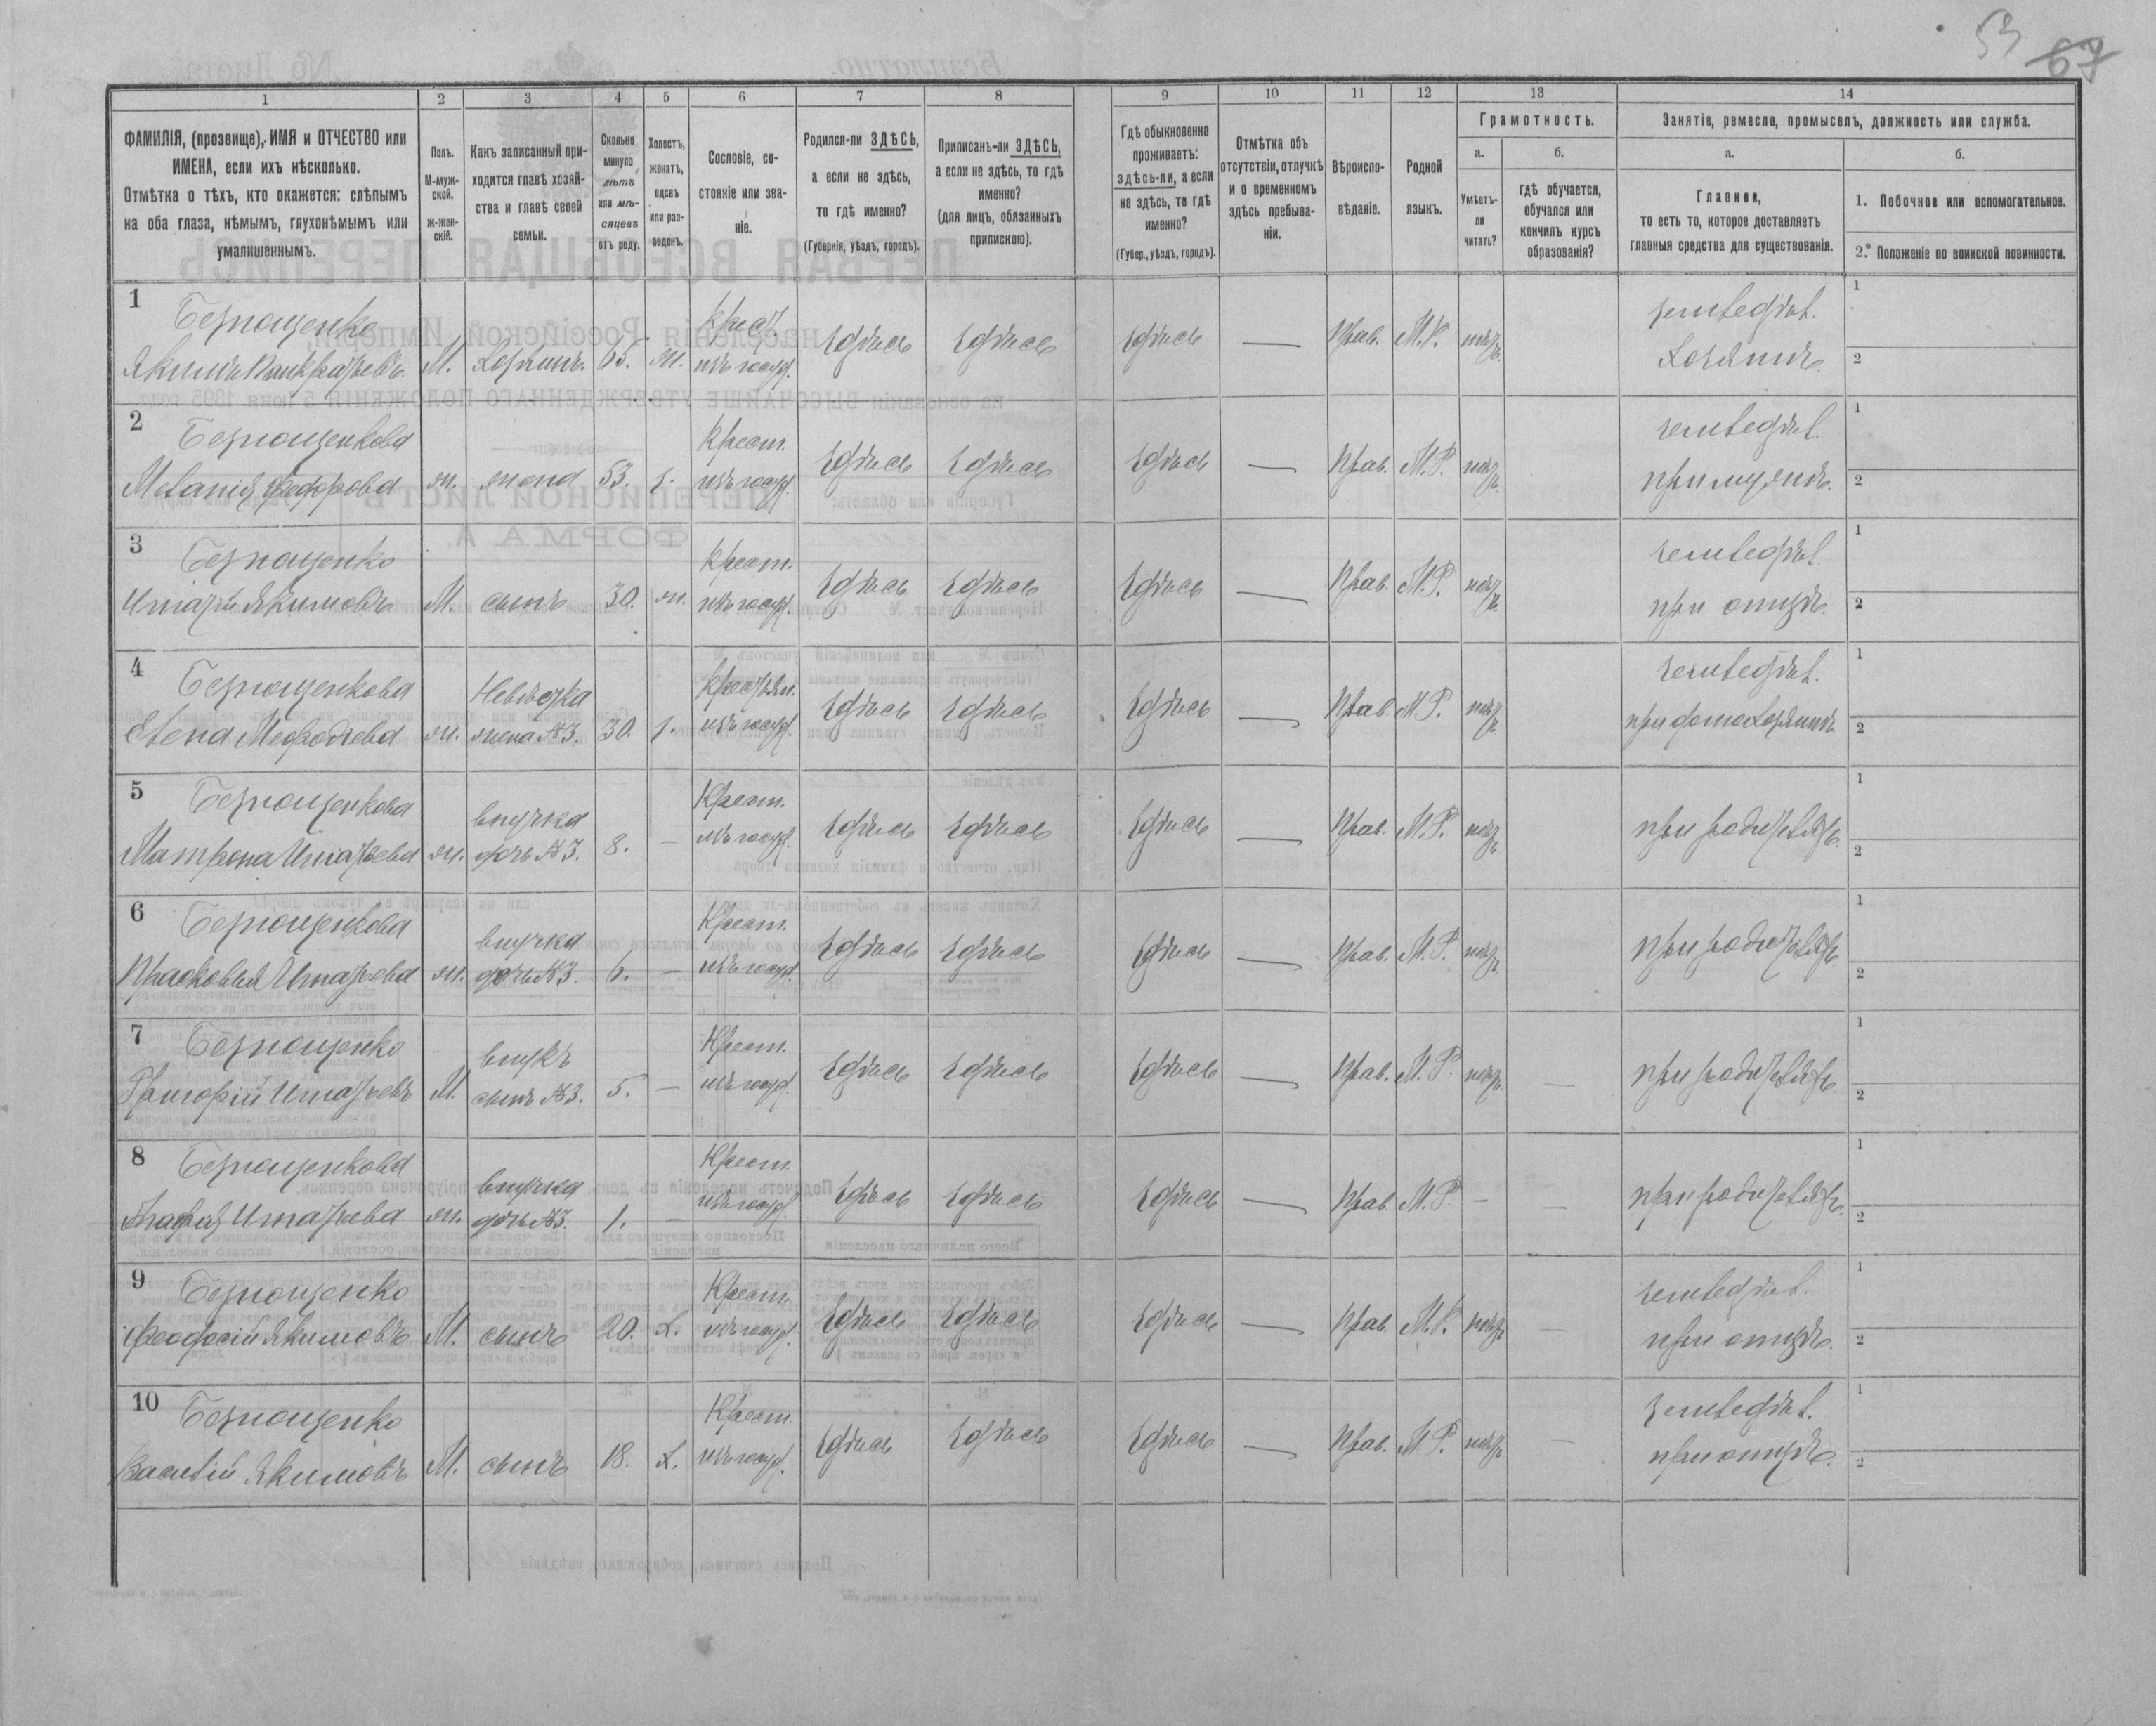 53 67
1 2 3 4 5 6 7 8 9 10 11 12 13 14
ФАМИЛІЯ, (прозвище), ИМЯ и ОТЧЕСТВО или
ИМЕНА, если ихъ нѣсколько.
Отмѣтка о тѣхъ, кто окажется: слѣпымъ
на оба глаза, нѣмымъ, глухонѣмымъ или
умалишеннымъ.
Полъ.
М-муж-
ской.
ж-жен-
скій.
Какъ записанный при-
ходится главѣ хозяй-
ства и главѣ своей
семьи.
Сколько
минуло
лѣтъ
или мѣ-
сяцевъ
отъ роду.
Холостъ,
женатъ,
вдовъ
или раз-
веденъ.
Сословіе, со-
стояніе или зва-
ніе.
Родился-ли ЗДѢСЬ,
а если не здѣсь,
то гдѣ именно?
(Губернія, уѣздъ, городъ).
Приписанъ-ли ЗДѢСЬ,
а если не здѣсь, то гдѣ
именно?
(для лицъ, обязанныхъ
припискою).
Гдѣ обыкновенно
проживаетъ:
здѣсь-ли, а если
не здѣсь, то гдѣ
именно?
(Губер., уѣздъ, городъ).
Отмѣтка объ
отсутствіи, отлучкѣ
и о временномъ
здѣсь пребыва-
ніи.
Вѣроиспо-
вѣданіе.
Родной
языкъ.
Грамотность.
а.
Умѣетъ-
ли
читать?
б.
гдѣ обучается,
обучался или
кончилъ курсъ
образованія?
Занятіе, ремесло, промыселъ, должность или служба.
а.
Главное,
то есть то, которое доставляетъ
главныя средства для существованія.
б.
1. Побочное или вспомогательное.
2. Положеніе по воинской повинности.
1 Безнощенко Крест. земледѣл. 1
Якимъ Панкратьевъ М. Хозяинъ. 65. ж. изъ госуд. Здѣсь Здѣсь Здѣсь — Прав. М.Р. нѣтъ Хозяинъ. 2
2 Безнощенкова Крест. земледѣл. 1
Меланія Федорова ж. жена 53. з. изъ госуд. Здѣсь Здѣсь Здѣсь — Прав. М.Р. нѣтъ при мужѣ. 2
3 Безнощенко Крест. земледѣл. 1
Игнатій Якимовъ М. сынъ 30. ж. изъ госуд. Здѣсь Здѣсь Здѣсь — Прав. М.Р. нѣтъ при отцѣ. 2
4 Безнощенкова Невѣстка Крестьян. земледѣл. 1
Елена Мефодіева ж. жена №3. 30. з. изъ госуд. Здѣсь Здѣсь Здѣсь — Прав. М.Р. нѣтъ при домохозяинѣ 2
5 Безнощенкова внучка Крест. 1
Матрона Игнатьева ж. дочь №3. 8. — изъ госуд. Здѣсь Здѣсь Здѣсь — Прав. М.Р. нѣтъ при родителяхъ. 2
6 Безнощенкова внучка Крест. 1
Прасковья Игнатьева ж. дочь №3. 6. — изъ госуд. Здѣсь Здѣсь Здѣсь — Прав. М.Р. нѣтъ при родителяхъ 2
7 Безнощенко внукъ Крест. 1
Григорій Игнатьевъ М. сынъ №3. 5. — изъ госуд. Здѣсь Здѣсь Здѣсь — Прав. М.Р. нѣтъ — при родителяхъ. 2
8 Безнощенкова внучка Крест. 1
Игнатьева ж. дочь №3. 1. — изъ госуд. Здѣсь Здѣсь Здѣсь — Прав. М.Р. — — при родителяхъ. 2
9 Безнощенко Крест. земледѣл. 1
Феодосій Якимовъ М. сынъ 20. х. изъ госуд. Здѣсь Здѣсь Здѣсь — Прав. М.Р. нѣтъ — при отцѣ. 2
10 Безнощенко Крест. земледѣл. 1
Василій Якимовъ М. сынъ 18. х. изъ госуд. Здѣсь Здѣсь Здѣсь — Прав. М.Р. нѣтъ — при отцѣ. 2